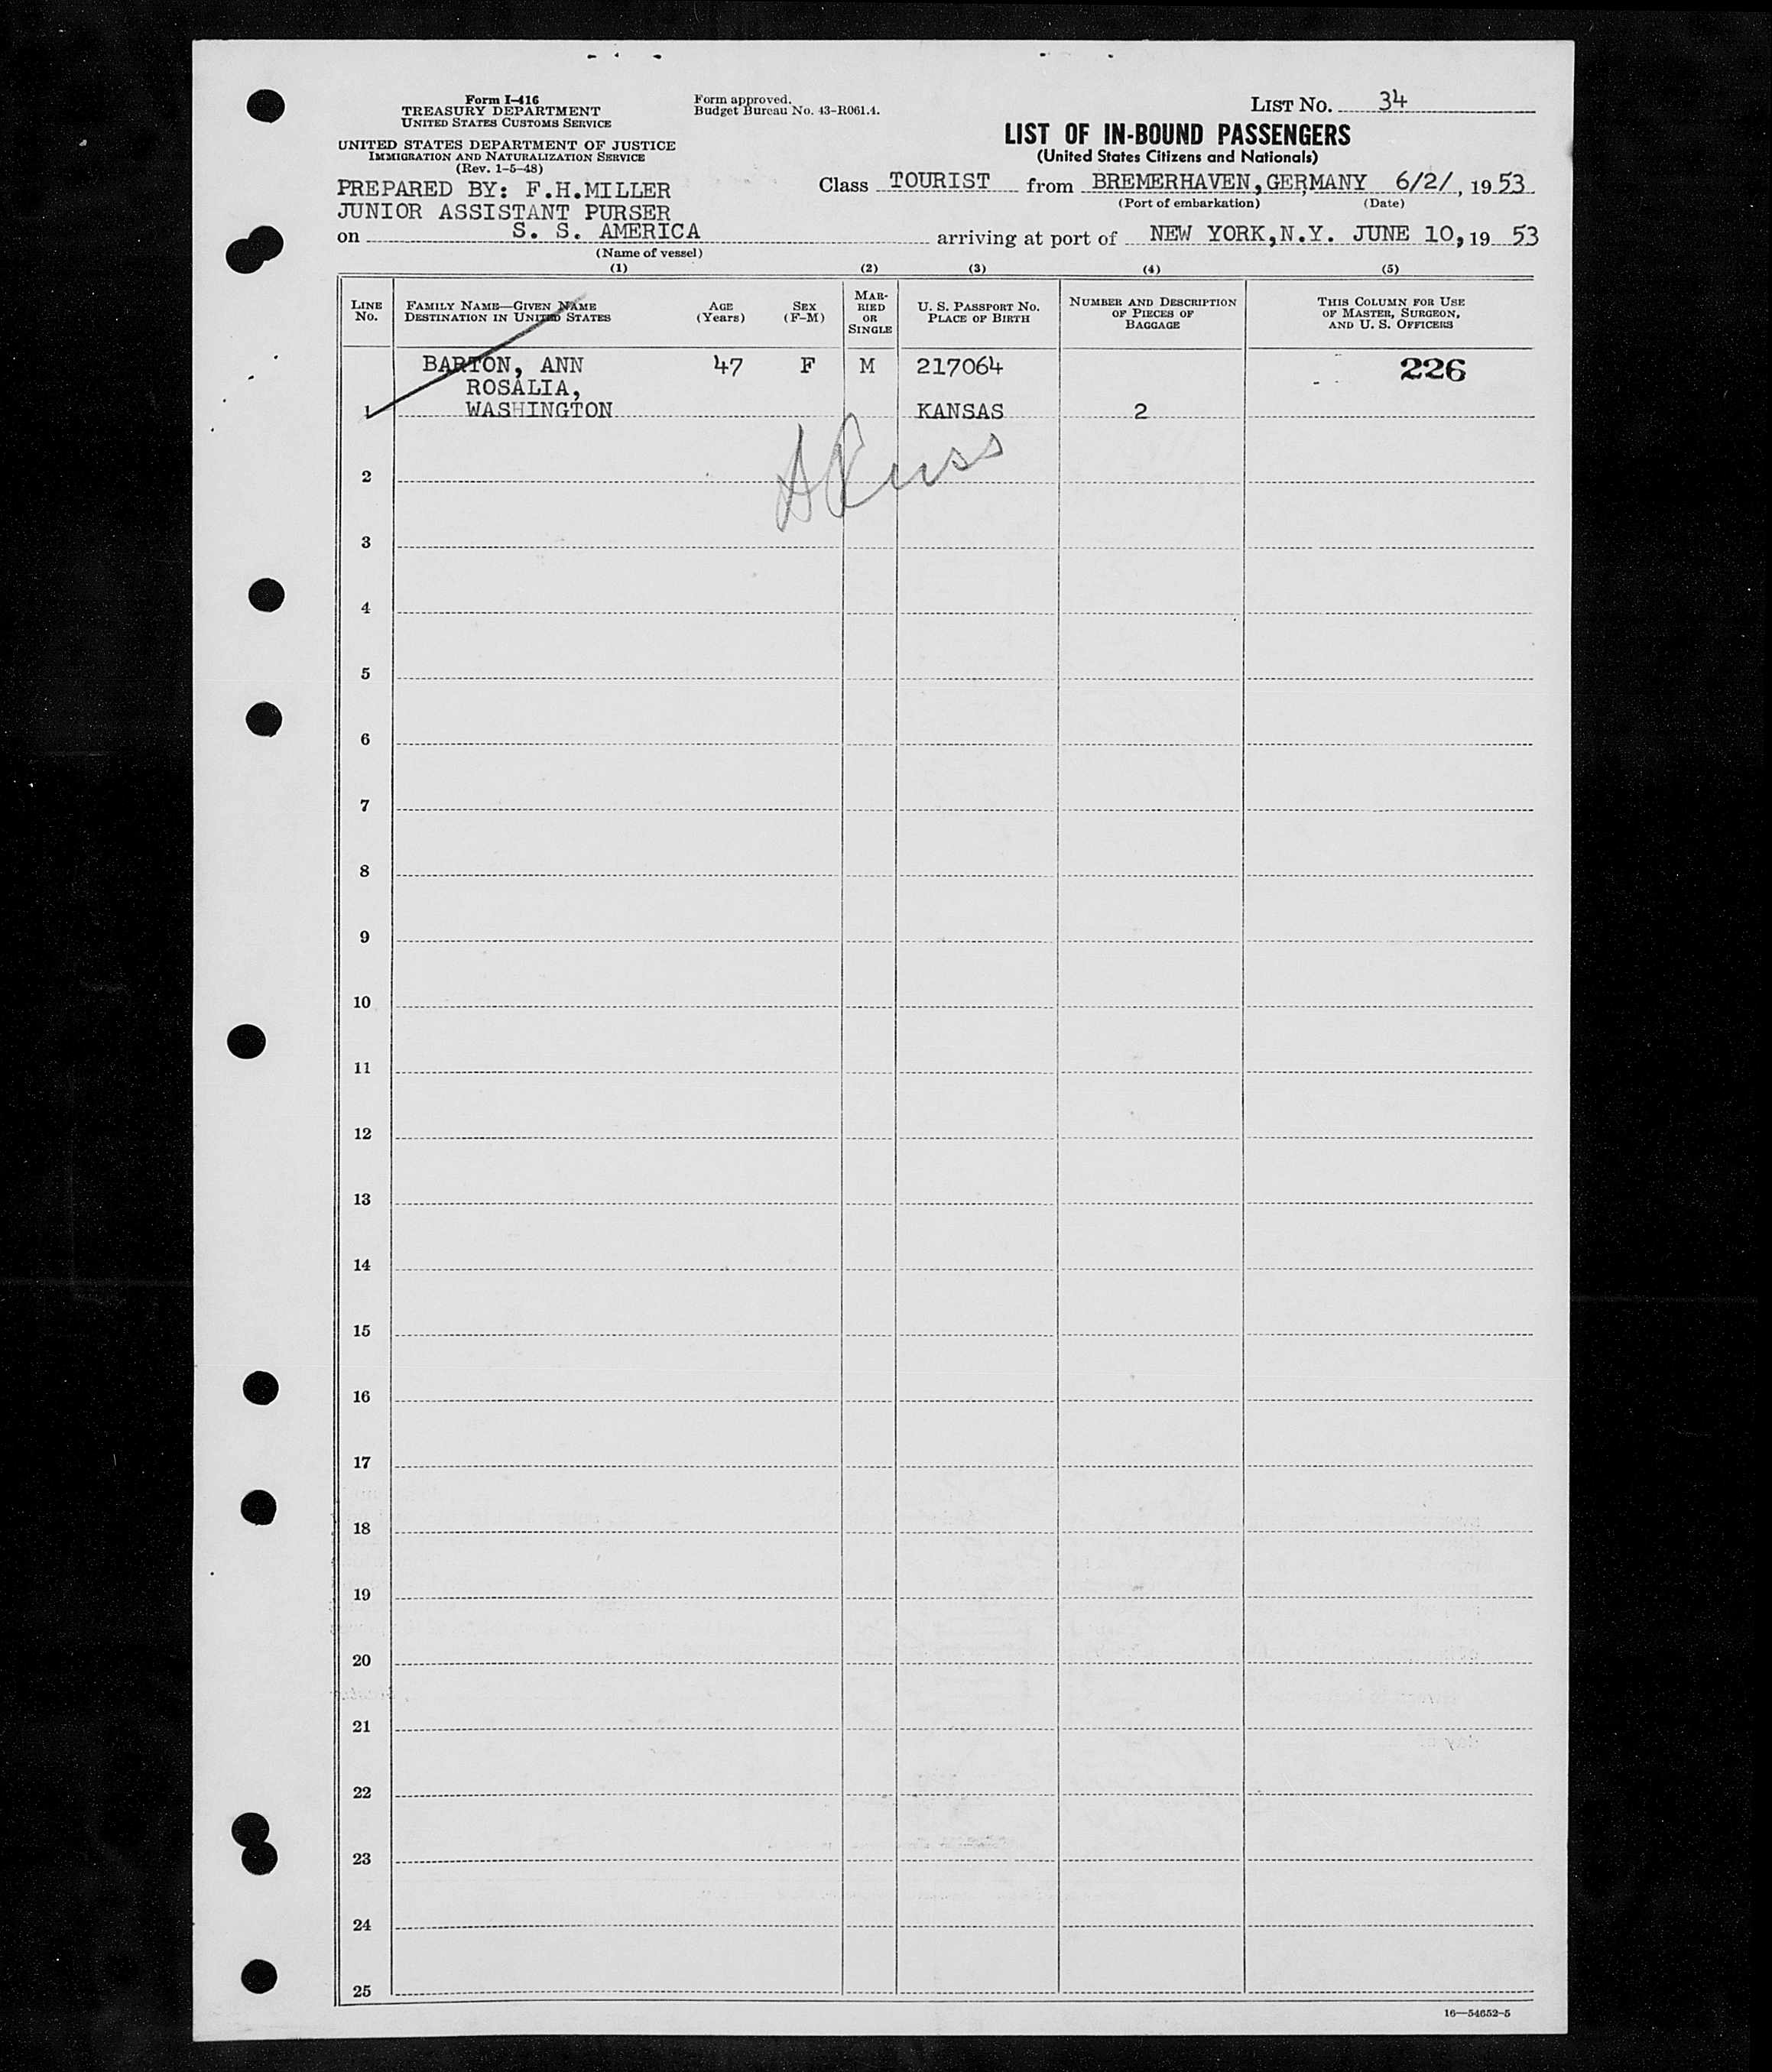 Form I-416
TREASURY DEPARTMENT
UNITED STATES CUSTOMS SERVICE
UNITED STATES DEPARTMENT OF JUSTICE
IMMIGRATION AND NATURALIZATION SERVICE
(Rev. 1-5-48)
PREPARED BY: F.H.MILLER
JUNIOR ASSISTANT PURSER
Form approved.
Budget Bureau No. 43-R061.4.
LIST NO. 34
LIST OF IN-BOUND PASSENGERS
(United States Citizens and Nationals)
Class TOURIST from BREMERHAVEN, GERMANY 6/2/, 1953
(Port of embarkation) (Date)
on S. S. AMERICA arriving at port of NEW YORK, N.Y. JUNE 10, 19 53
(Name of vessel)
(1) (2) (3) (4) (5)
LINE NO. FAMILY NAME—GIVEN NAME DESTINATION IN UNITED STATES AGE (Years) SEX (F-M) MARRIED OR SINGLE U. S. PASSPORT NO. PLACE OF BIRTH NUMBER AND DESCRIPTION OF PIECES OF BAGGAGE THIS COLUMN FOR USE OF MASTER, SURGEON, AND U. S. OFFICERS
BARTON, ANN 47 F M 217064 226
ROSALIA,
1 WASHINGTON KANSAS 2
2
3
4
5
6
7
8
9
10
11
12
13
14
15
16
17
18
19
20
21
22
23
24
25
16—54652-5